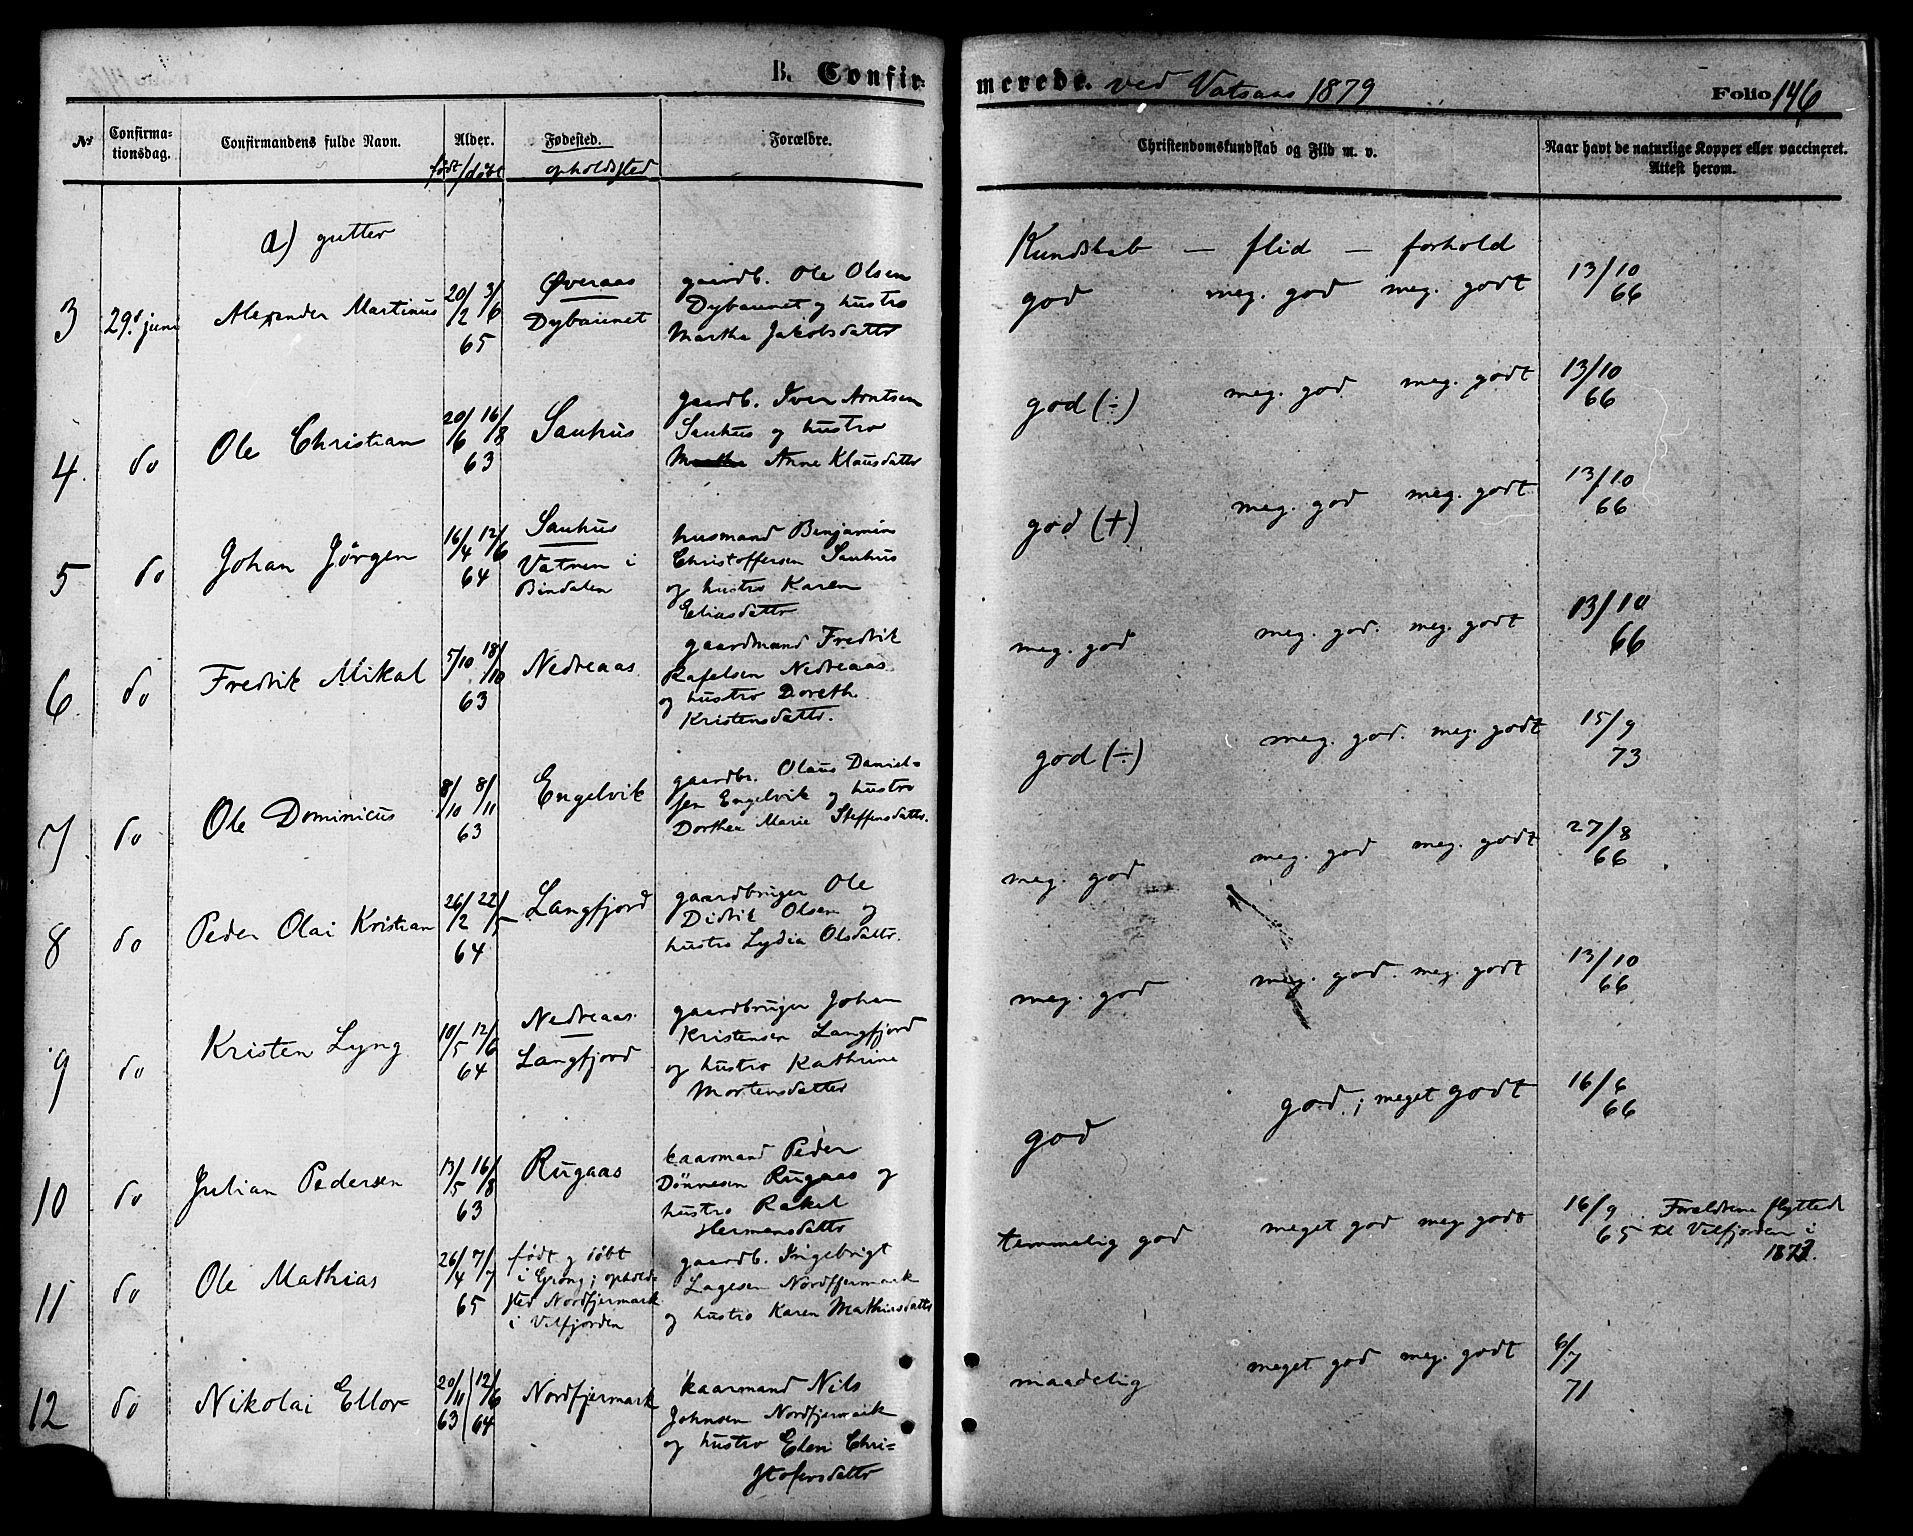 B. Confir-
merede. ved Vatsaas 1879
Folio 146
№
Confirma-
tionsdag.
Confirmandens fulde Navn.
Alder.
født/døbt
Fødested.
opholdssted
Forældre.
Christendomskundskab og Flid m. v.
Naar havt de naturlige Kopper eller vaccineret.
Attest herom.
a) gutter
Kundskab — flid — forhold
3
29d juni
Alexander Martinus
20/2 3/6
65
Øveraas
Dybaunet
gaardb. Ole Olsen
Dybaunet og hustro
Martha Jakobsdatter
god meg. god meg. godt
13/10
66
4.
do
Ole Christian
20/6 16/8
63
Sauhus
gaardb. Iver Arntsen
Sauhus og hustro
Martha Anne Klausdatter
god (÷) meg. god meg. godt
13/10
66
5
do
Johan Jørgen
16/4 12/6
64
Sauhus
Vatnen i
Bindalen
husmand Benjamin
Christoffersen Sauhus
og hustro Karen
Eliasdatter
god (+) meg. god meg. godt
13/10
66
6.
do
Fredrik Mikal
5/10 18/10
63
Nedreaas
gaardmand Fredrik
Rafelsen Nedreaas
og hustro Doreth.
Kristensdattr.
meg. god meg. god. meg. godt
13/10
66
7
do
Ole Dominicus
8/10 8/11
63
Engelvik
gaardbr. Olaus Daniel-
sen Engelvik og hustro
Dorthea Marie Steffensdattr.
god (÷) meg. god. meg. godt
15/9
73
8
do
Peder Olai Kristian
26/2 22/5
64
Langfjord
gaardbruger Ole
Didrik Olsen og
hustro Lydia Olsdattr.
meg. god meg. god meg. godt
27/8
66
9
do
Kristen Lyng
10/5 12/6
64
Nedreaas.
Langfjord
gaardbruger Johan
Kristensen Langfjord
og hustro Kathrine
Mortensdatter
meg. god meg. god. meg. godt
13/10
66
10
do
Julian Pedersen
13/5 16/8
63
Rugaas
kaarmand Peder
Dønnesen Rugaas og
hustro Rakel
Hermensdatter
god god; meget godt
16/6
66
11
do
Ole Mathias
26/4 7/7
65
født og døbt
i Grong; ophold-
sted Nordfjermark
i Velfjorden
gaardb. Ingebrigt
Lagesen Nordfjermark
og hustro Karen Mathiasdatter
temmelig god meget god meg. godt
16/9
65
Forældrene flyttede
til Velfjorden i
1873.
12
do
Nikolai Ellor
20/11 12/6
63 64
Nordfjermark
kaarmand Nils
Johnsen Nordfjermark
og hustro Elen Chri-
stofersdatter
maadelig meget god meg. godt
6/7
71